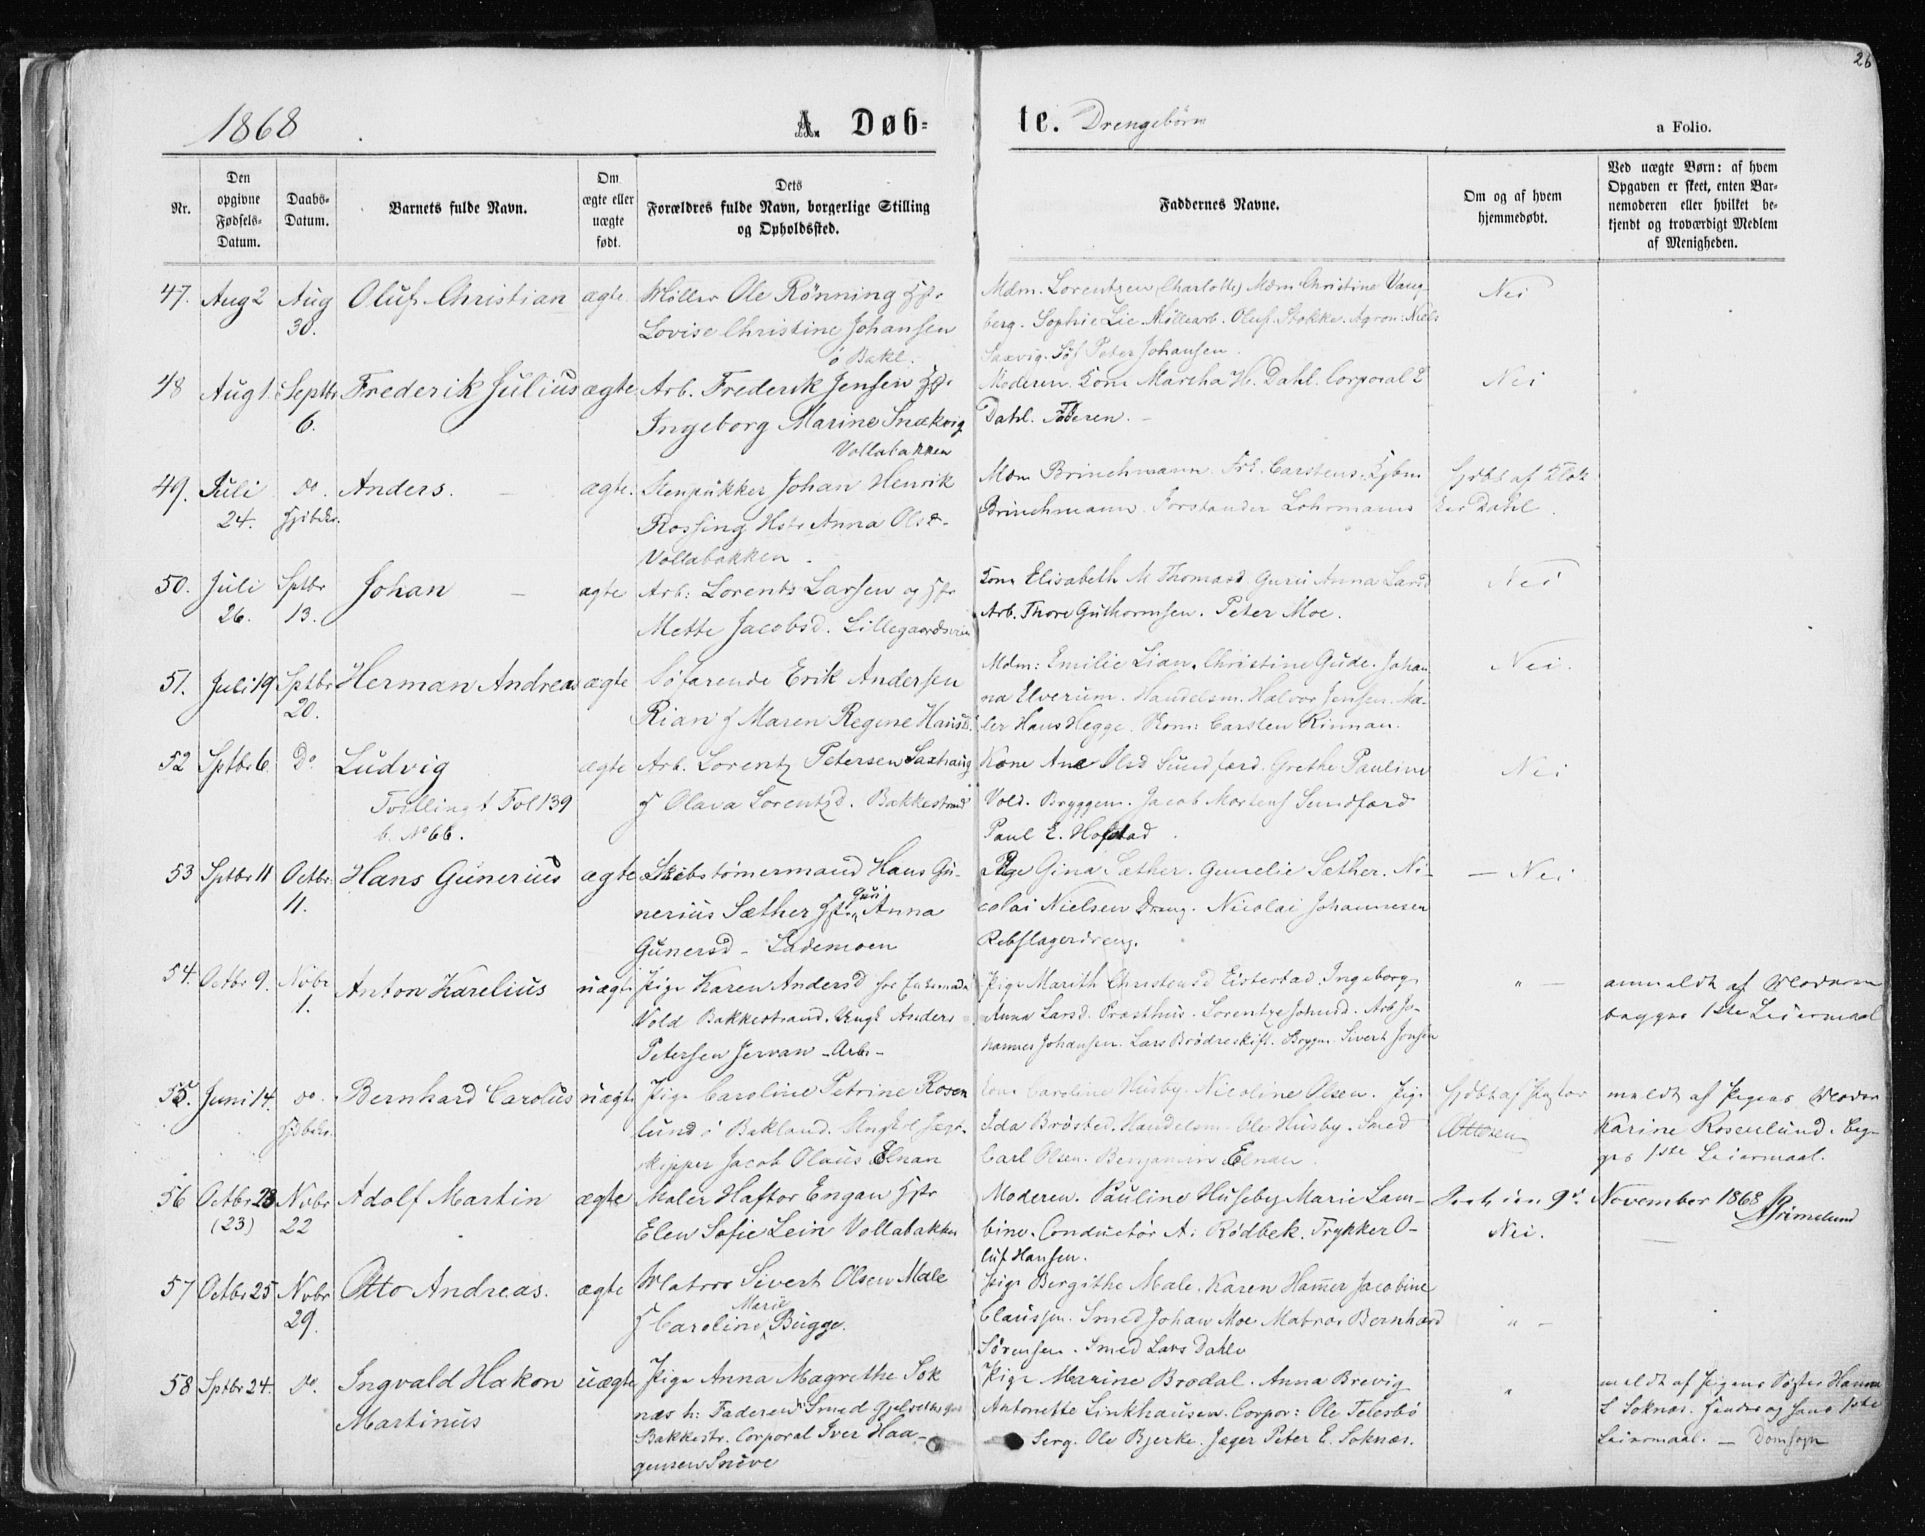 26
1868
A. Døb-
te. Drengebørn
a Folio.
Nr.
Den opgivne Fødsels-Datum.
Daabs-Datum.
Barnets fulde Navn.
Om ægte eller uægte født.
Dets Forældres fulde Navn, borgerlige Stilling og Opholdssted.
Faddernes Navne.
Om og af hvem hjemmedøbt.
Ved uægte Børn: af hvem Opgaven er skeet, enten Barnemoderen eller hvilket bekjendt og troværdigt Medlem af Menigheden.
47. Aug 2 Aug 30. Oluf Christian ægte
Møller Ole Rönning Hstr
Lovise Christine Johansen
ö Bakl.
Mdm. Lorentzen (Charlotte) Mdm Christine Vang-
berg. Sophie Lie Möllearb. Oluf Stokke. Agron: Niels
Saxvig. Søf Peter Johansen.
Nei
48 Aug 1. Septbr 6. Frederik Julius ægte
Arb. Frederik Jensen Hstr
Ingeborg Marine Snækvig
Vollabakken
Moderen. Kone Martha H. Dahl. Corporal L
Dahl. Faderen.
Nei
49. Juli 24. do. Hjdøbt. Anders. ægte.
Stenpukker Johan Henrik
Rossing Hstr Anna Olsd.
Vollabakken.
Mdm Brinchmann. Frk. Carstens. Kjbm
Brinchmann. Forstander Lohrmann
Hjdbt af Klok
ker Dahl.
50. Juli 26. Sptbr 13. Johan ægte
Arb: Lorents Larsen og Hstr
Mette Jacobsd. Lillegaardsvein
Kone Elisabeth M Thomasd Guru Anna Larsd
Arb. Thore Guthormsen. Peter Moe.
Nei
51. Juli 19 Sptbr 20. Herman Andreas ægte
Søfarende Erik Andersen
Rian H Maren Regine Hansd.
Mdm: Emilie Lian. Christine Gude. Johan
na Elverum. Handelsm. Halvor Jensen. Ma-
ler Hans Hegge. Carsten Rinnan.
Nei.
52 Sptbr 6. Do Ludvig ægte
Tvilling t Fol 139
b. No 66.
Arb. Lorentz Petersen Saxhaug
H Olava Lorentzd. Bakkestrand
Kone Ane Olsd Sundford. Grethe Pauline
Vold. Bryggem. Jacob Mortens Sundford
Paul E. Hofstad.
Nei
53 Sptbr 11 Octbr. 11. Hans Gunerius ægte
Skibstømermand Hans Gu-
nerius Sæther Hstr Guri Anna
Gunersd - Lademoen
Pige Gina Sæther. Gunelie Sæther. Ni-
colai Nielsen Dreng. Nicolai Johannesen
Rebslagerdreng.
- Nei
54. Octbr 9. Novbr 1. Anton Karelius uægte
Pige Karen Andersd
Vold Bakkestrand. Ungk Anders
Petersen Jervan - Arbr -
Pige Marith Christensd Eisterstad Ingeborg
Anna Larsd. Præsthus. Lorentze Johnsd. Arb Jo-
hannes Johansen. Lars Brödreskift. Bryggm. Sivert Jonsen
" -
anmeldt af Moderen
begges 1ste Leiermaal
55. Juni 14. do. Hjdbt. Bernhard Carolus uægte
Pige Caroline Petrine Rosen
lund ö Bakland. Ungkrl Jægt-
skipper Jacob Olaus Elnan
Kone Caroline Husby. Nicoline Olsen. Pige
Ida Brøsted. Handelsm. Ole Husby. Smed
Carl Olsen. Benjamin Elnan.
Hjdbt af Pastor
Ottesen
meldt af Pigens Moder
Karine Rosenlund. Beg-
ges 1ste Leiermaal.
56 Octbr 23 (23) Novbr 22 Adolf Martin ægte
Maler Haftor Engan Hstr
Elen Sofie Lein Vollabakken
Moderen. Pauline Huseby Marie Lam-
bine. Conductör A: Rödbek. Trykker O-
luf Hansen.
9d. November 1868
Grimelund
Nei.
57 Octbr 25 Novbr 29. Otto Andreas. ægte
Matros Sivert Olsen Male
H Caroline Marie Bugge.
Pige Bergithe Male. Karen Hamer Jacobine
Claussen. Smed Johan Moe Matros Bernhard
Sörensen. Smed Lars Dahle
" -
58 Sptbr 24. do. Ingvald Hakon
Martinus uægte
Pige Anna Magrethe Sok
næs h: Faderen Smed
Bakkestr. Corporal Iver Haa-
gensen Snöve
Pige Marine Brodal. Anna Brevig
Antonette Linkhausen. Corpor: Ole Telesbö
Serg. Ole Bjerke. Jæger Peter E. Soknæs.
"
meldt af Pigens Søster Hanna
L Soknæs. Hendes og hans 1ste
Leiermaal. - Domsogn